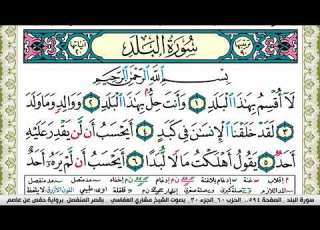 سُورَةُ الْبَلَدِ
بِسْمِ اللَّهِ الرَّحْمَٰنِ الرَّحِيمِ
لَا أُقْسِمُ بِهَٰذَا الْبَلَدِ ١ وَأَنتَ حِلٌّ بِهَٰذَا الْبَلَدِ ٢ وَوَالِدٍ وَمَا وَلَدَ
٣ لَقَدْ خَلَقْنَا الْإِنسَانَ فِي كَبَدٍ ٤ أَيَحْسَبُ أَن لَّن يَقْدِرَ عَلَيْهِ
أَحَدٌ ٥ يَقُولُ أَهْلَكْتُ مَالًا لُّبَدًا ٦ أَيَحْسَبُ أَن لَّمْ يَرَهُ أَحَدٌ
سورة البلد الصفحة ٥٩٤ الحزب ٦٠ الجزء ٣٠ بصوت الشيخ مشاري العفاسي بقصر المنفصل برواية حفص عن عاصم